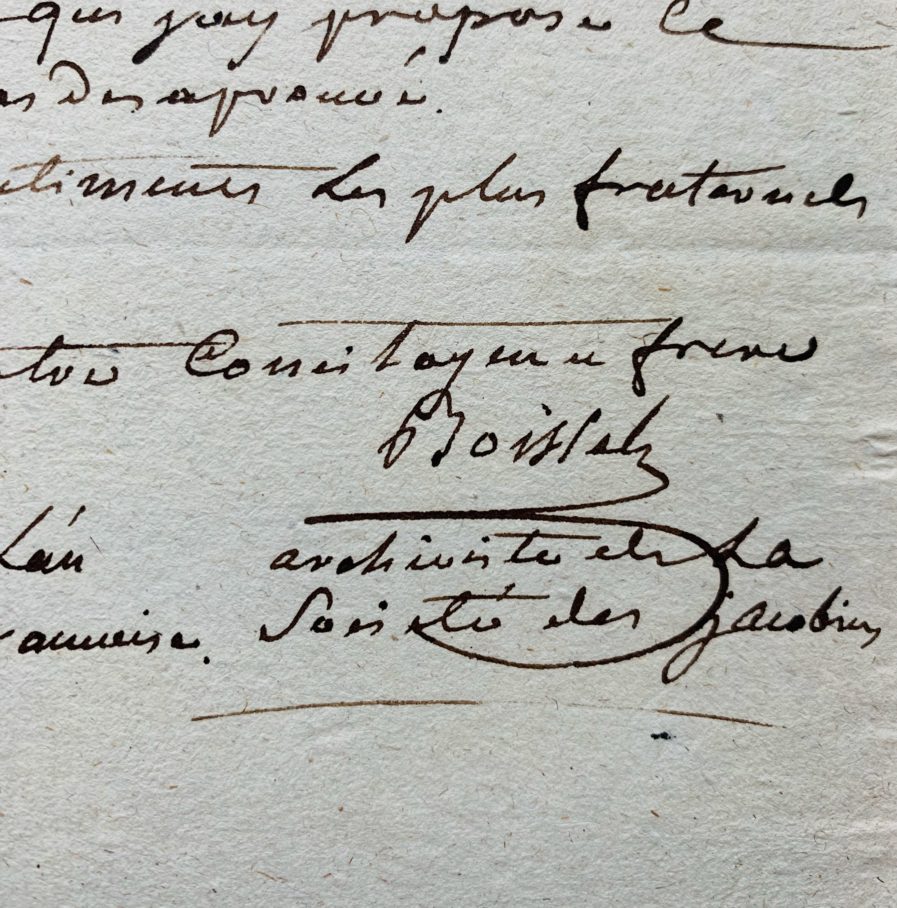 que jay propose le
es desaprouvé.
ntimens les plus fraternels
otre Concitoyen e frere
Boissel
L'an archiviste de la
rancoise. Societé des jacobins